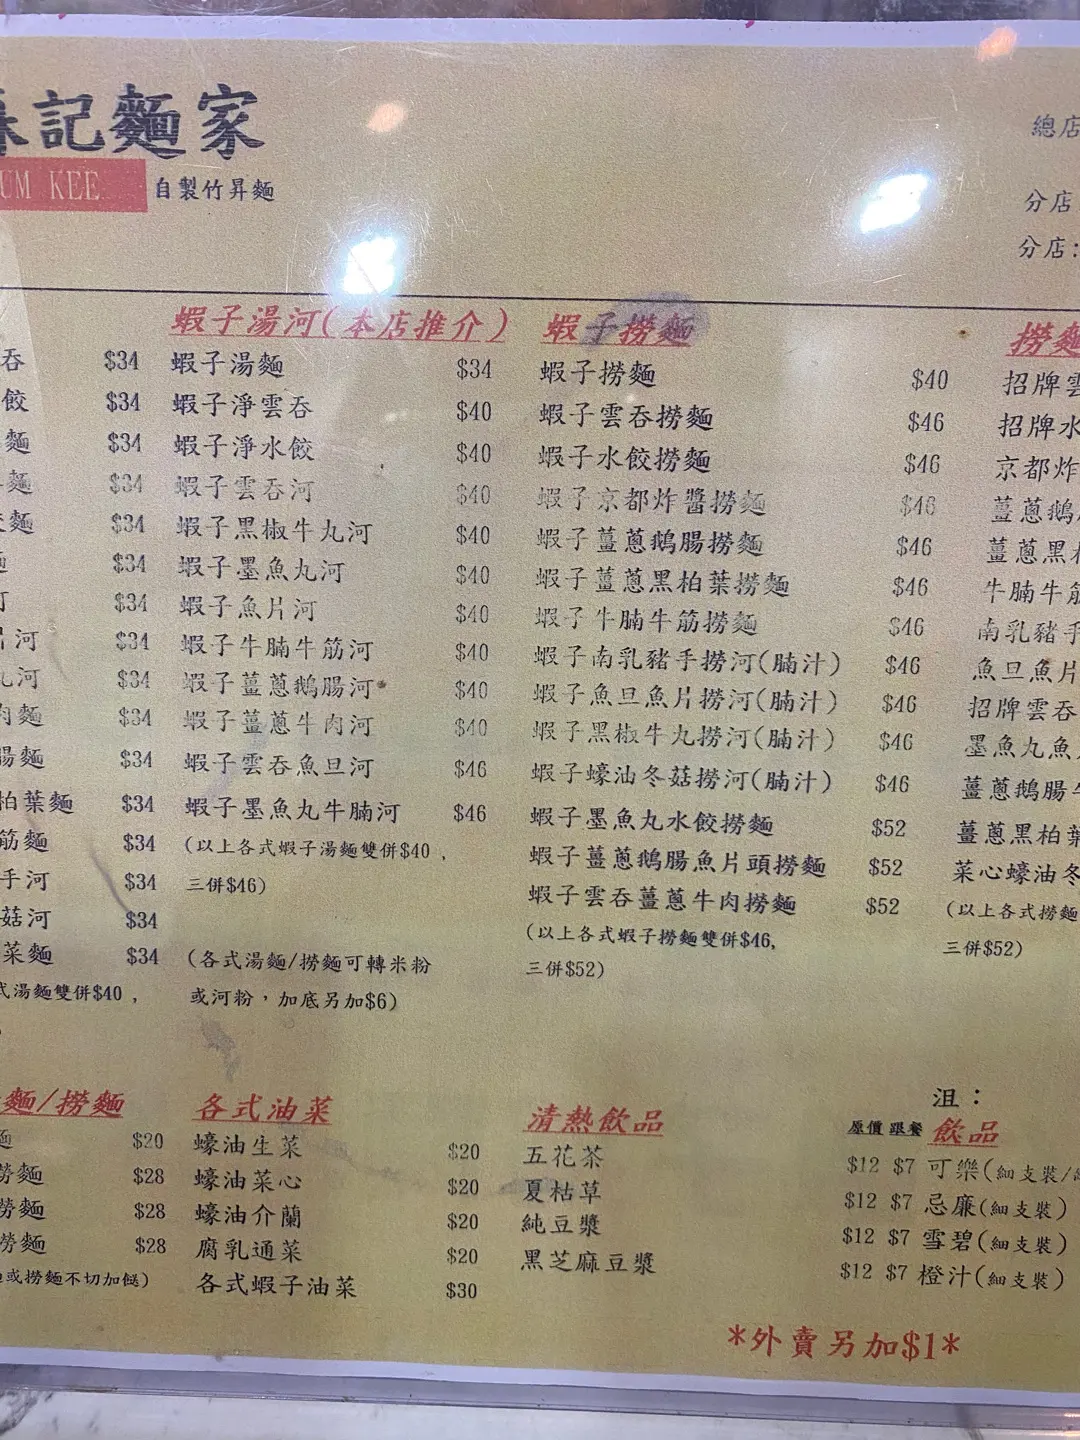 記麵家
UM KEE
自製竹昇麵
總店
分店
分店:
吞 $34
餃 $34
麵 $34
麵 $34
麵 $34
$34
$34
河 $34
河 $34
肉麵 $34
腸麵 $34
柏葉麵 $34
筋麵 $34
手河 $34
菇河 $34
菜麵 $34
式湯麵雙併$40，
蝦子湯河(本店推介)
蝦子湯麵 $34
蝦子淨雲吞 $40
蝦子淨水餃 $40
蝦子雲吞河 $40
蝦子黑椒牛丸河 $40
蝦子墨魚丸河 $40
蝦子魚片河 $40
蝦子牛腩牛筋河 $40
蝦子薑蔥鵝腸河 $40
蝦子薑蔥牛肉河 $40
蝦子雲吞魚旦河 $46
蝦子墨魚丸牛腩河 $46
(以上各式蝦子湯麵雙併$40，
三併$46)
(各式湯麵/撈麵可轉米粉
或河粉，加底另加$6)
蝦子撈麵
蝦子撈麵 $40
蝦子雲吞撈麵 $46
蝦子水餃撈麵 $46
蝦子京都炸醬撈麵 $46
蝦子薑蔥鵝腸撈麵 $46
蝦子薑蔥黑柏葉撈麵 $46
蝦子牛腩牛筋撈麵 $46
蝦子南乳豬手撈河(腩汁) $46
蝦子魚旦魚片撈河(腩汁) $46
蝦子黑椒牛丸撈河(腩汁) $46
蝦子蠔油冬菇撈河(腩汁) $46
蝦子墨魚丸水餃撈麵 $52
蝦子薑蔥鵝腸魚片頭撈麵 $52
蝦子雲吞薑蔥牛肉撈麵 $52
(以上各式蝦子撈麵雙併$46,
三併$52)
撈麵
招牌雲
招牌水
京都炸
薑蔥鵝
薑蔥黑
牛腩牛筋
南乳豬手
魚旦魚片
招牌雲吞
墨魚丸魚
薑蔥鵝腸
薑蔥黑柏葉
菜心蠔油冬
(以上各式撈麵
三併$52)
麵/撈麵
麵 $20
撈麵 $28
撈麵 $28
撈麵 $28
或撈麵不切加餸)
各式油菜
蠔油生菜 $20
蠔油菜心 $20
蠔油介蘭 $20
腐乳通菜 $20
各式蝦子油菜 $30
清熱飲品
五花茶
夏枯草
純豆漿
黑芝麻豆漿
沮：
原價 跟餐 飲品
$12 $7 可樂(細支裝/
$12 $7 忌廉(細支裝)
$12 $7 雪碧(細支裝)
$12 $7 橙汁(細支裝)
*外賣另加$1*